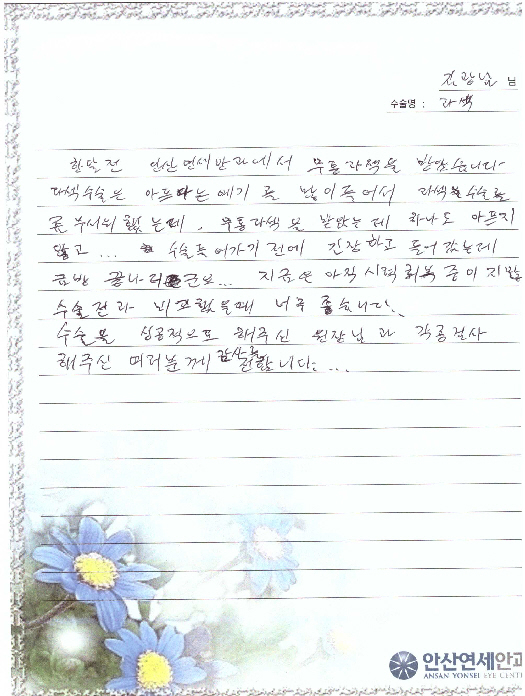 김광남 님
수술명 : 라섹
한달전 안산연세안과에서 무통라섹을 받았습니다.
라섹수술은 아프다는 얘기를 많이 들어서 라섹 수술을
무서워 했는데, 무통라섹을 받았는데 하나도 아프지
않고... 수술 들어가기 전에 긴장하고 들어갔는데
금방 끝나더군요... 지금은 아직 시력 회복 중이지만
수술전과 비교했을때 너무 좋습니다.
수술을 성공적으로 해주신 원장님과 각종검사
해주신 여러분께 감사를 전합니다...
안산연세안과
ANSAN YONSEI EYE CENT